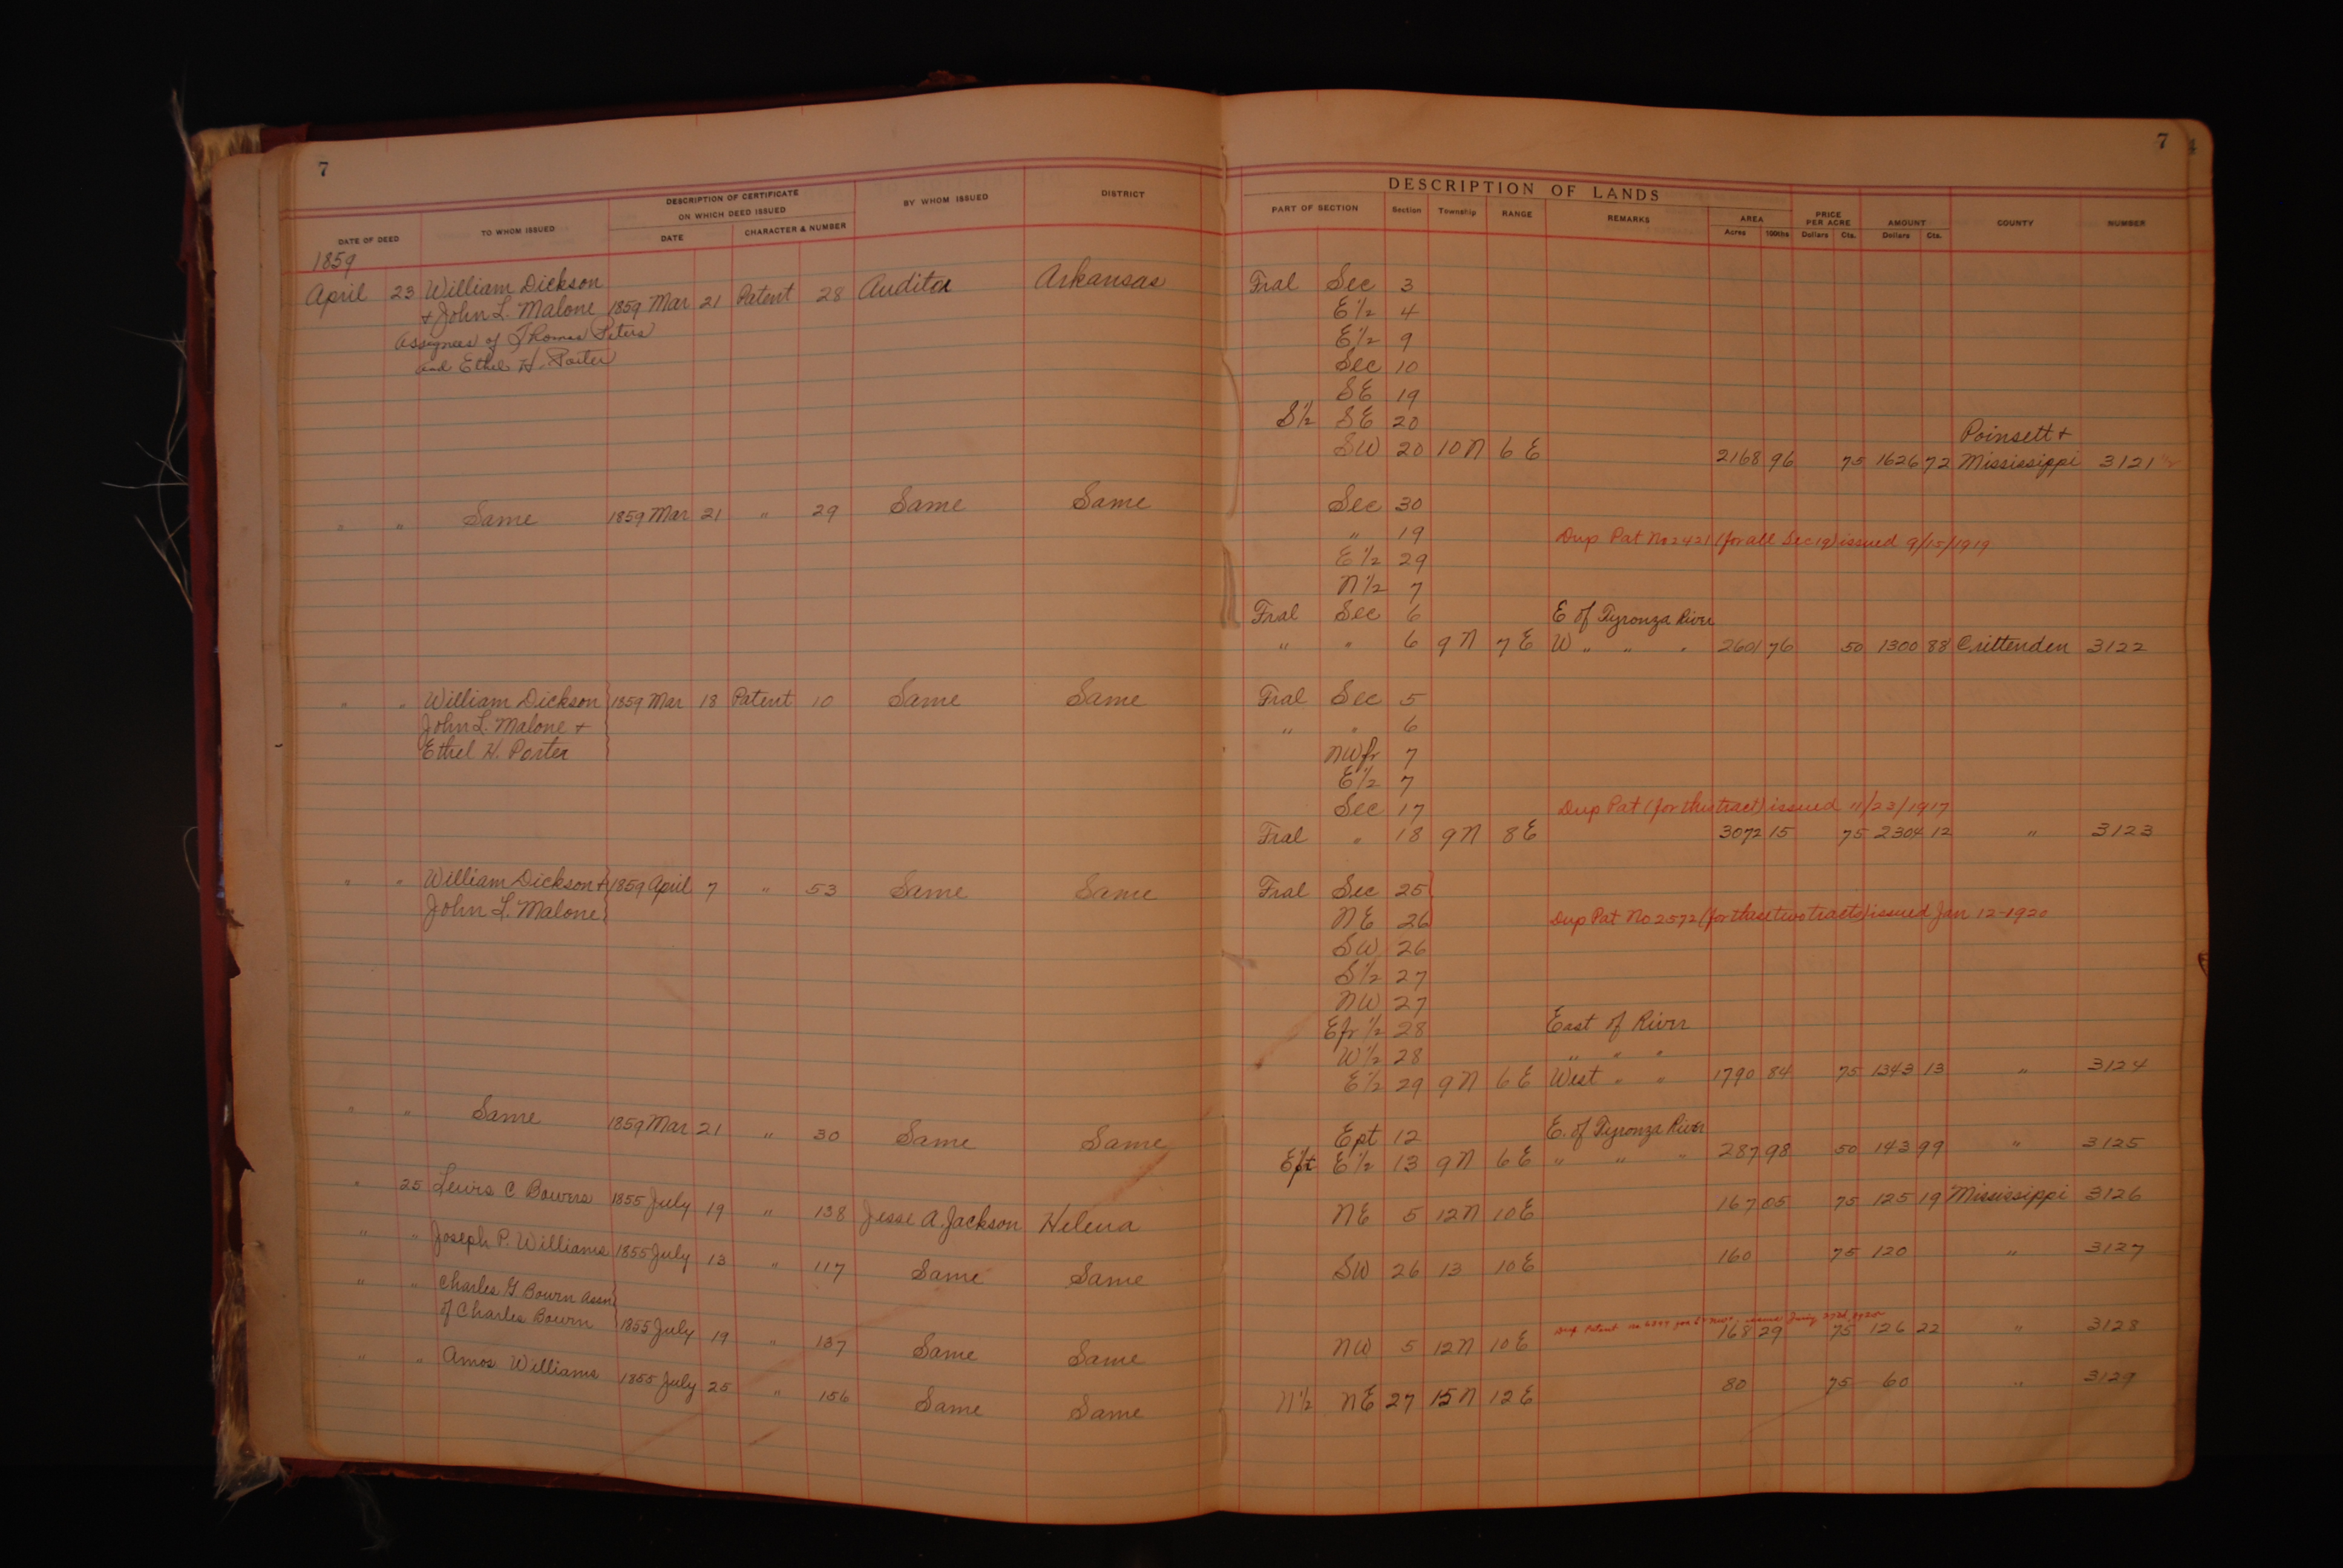 7
7
DESCRIPTION OF CERTIFICATE
ON WHICH DEED ISSUED
DATE OF DEED TO WHOM ISSUED DATE CHARACTER & NUMBER BY WHOM ISSUED DISTRICT
DESCRIPTION OF LANDS
PART OF SECTION Section Township RANGE REMARKS AREA PRICE PER ACRE AMOUNT COUNTY NUMBER
Acres 100ths Dollars Cts. Dollars Cts.
1859
April 23 William Dickson
& John L. Malone 1859 Mar 21 Patent 28 Auditor Arkansas Fral Sec 3
Assignees of Thomas Peters E 1/2 4
and Ethel H. Porter E 1/2 9
Sec 10
SE 19
S 1/2 SE 20
Poinsett &
SW 20 10 N 6 E 2168 96 75 1626 72 Mississippi 3121
" " Same 1859 Mar 21 " 29 Same Same Sec 30
" 19 Dup Pat No 2421 (for all Sec 19) issued 9/15/1919
E 1/2 29
N 1/2 7
Fral Sec 6 E of Tyronza River
" " 6 9 N 7 E W " " " 2601 76 50 1300 88 Crittenden 3122
" " William Dickson 1859 Mar 18 Patent 10 Same Same Fral Sec 5
John L. Malone & " " 6
Ethel H. Porter NW fr 7
E 1/2 7
Sec 17 Dup Pat (for this tract) issued 11/23/1917
Fral " 18 9 N 8 E 3072 15 75 2304 12 " 3123
" " William Dickson & 1859 April 7 " 53 Same Same Fral Sec 25
John L. Malone NE 26 Dup Pat No 2572 (for these two tracts) issued Jan 12-1920
SW 26
S 1/2 27
NW 27
E fr 1/2 28 East of River
W 1/2 28 " " "
E 1/2 29 9 N 6 E West " " 1790 84 75 1343 13 " 3124
" " Same 1859 Mar 21 " 30 Same Same E pt 12 E. of Tyronza River
E pt E 1/2 13 9 N 6 E " " " 287 98 50 143 99 " 3125
" 25 Lewis C Bowers 1855 July 19 " 138 Jesse A. Jackson Helena NE 5 12 N 10 E 167 05 75 125 19 Mississippi 3126
" " Joseph P. Williams 1855 July 13 " 117 Same Same SW 26 13 10 E 160 75 120 " 3127
" " Charles G Bourn Assne
of Charles Bourn 1855 July 19 " 137 Same Same NW 5 12 N 10 E Dup Patent 168 29 75 126 22 " 3128
" " Amos Williams 1855 July 25 " 156 Same Same N 1/2 NE 27 15 N 12 E 80 75 60 " 3129